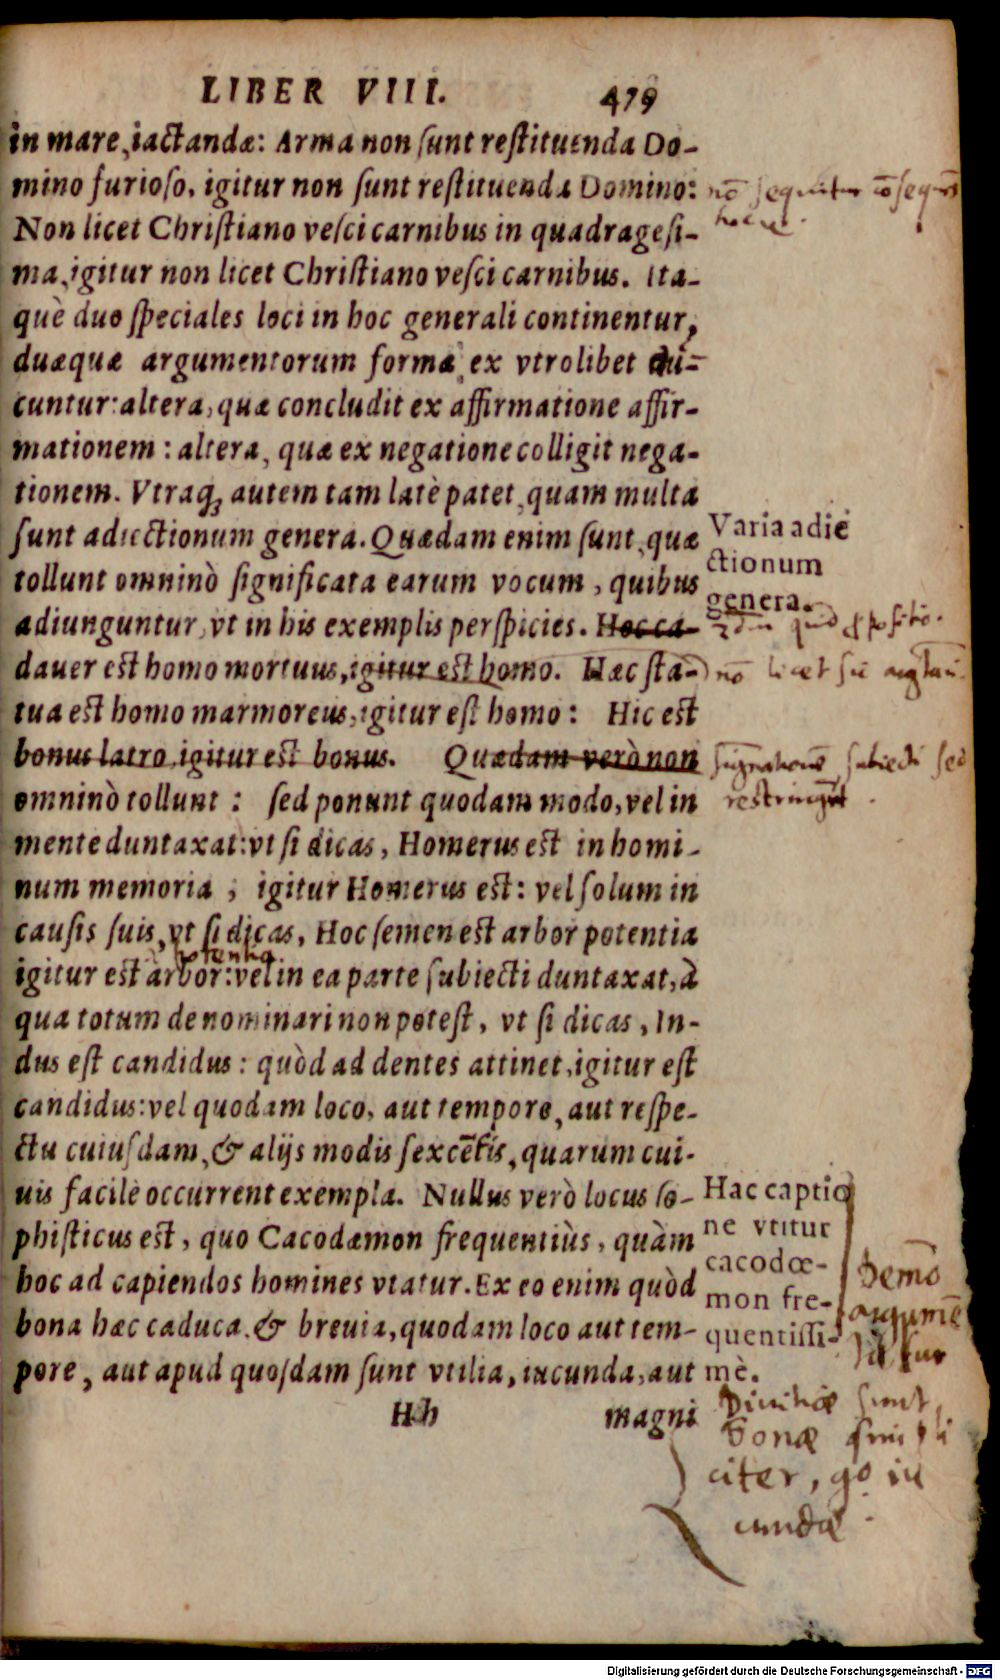 LIBER VIII. 479
in mare iactandæ: Arma non sunt restituenda Do-
mino furioso, igitur non sunt restituenda Domino:
Non licet Christiano vesci carnibus in quadragesi-
ma, igitur non licet Christiano vesci carnibus. Ita-
què duo speciales loci in hoc generali continentur,
duæquæ argumentorum formæ ex vtrolibet du-
cuntur: altera, quæ concludit ex affirmatione affir-
mationem: altera, quæ ex negatione colligit nega-
tionem. Vtraq; autem tam latè patet, quam multa
sunt adiectionum genera. Quædam enim sunt, quæ
tollunt omninò significata earum vocum, quibus
adiunguntur, vt in his exemplis perspicies. Hoc ca-
dauer est homo mortuus, igitur est homo. Hæc sta-
tua est homo marmoreus, igitur est homo: Hic est
bonus latro, igitur est bonus. Quædam verò non
omninò tollunt: sed ponunt quodam modo, vel in
mente duntaxat: vt si dicas, Homerus est in homi-
num memoria, igitur Homerus est: vel solum in
causis suis, vt si dicas, Hoc semen est arbor potentia
potentia
igitur est arbor: vel in ea parte subiecti duntaxat, à
qua totum denominari non potest, vt si dicas, In-
dus est candidus: quòd ad dentes attinet, igitur est
candidus: vel quodam loco, aut tempore, aut respe-
ctu cuiusdam, & alijs modis sexcētis, quarum cui-
uis facile occurrent exempla. Nullus verò locus so-
phisticus est, quo Cacodæmon frequentiùs, quàm
hoc ad capiendos homines vtatur. Ex eo enim quòd
bona hæc caduca, & breuia, quodam loco aut tem-
pore, aut apud quosdam sunt vtilia, iucunda, aut
Hh magni
nō sequitur
Varia adie
ctionum
genera.
nō licet
subiecti sed
restringūt.
Hac captio
ne vtitur
cacodœ-
mon fre-
quentissi-
mè.
Demō
argumē
Divitiæ sunt
bonæ simpli
citer, go iu
cundæ.